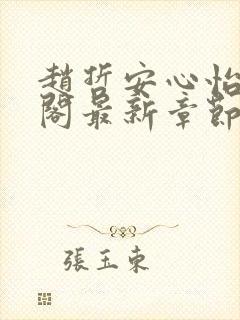 趙哲安心怡
閣最新章節
張玉東